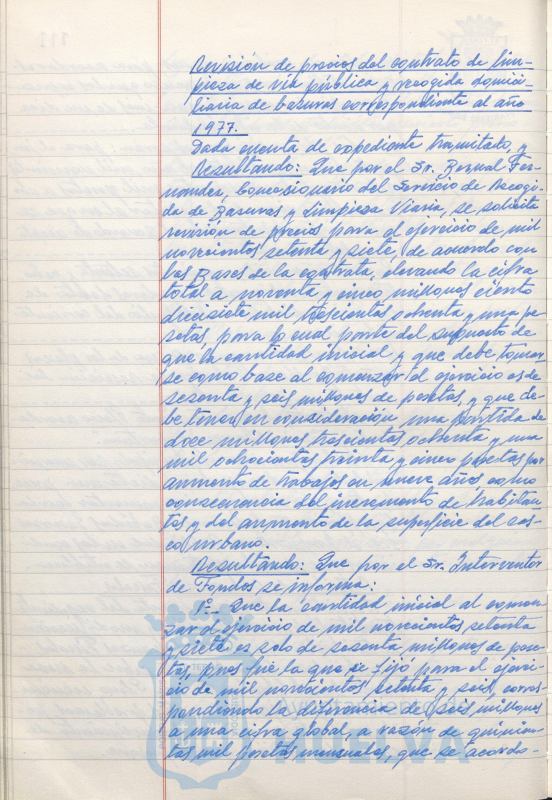 Revisión de precios del contrato de lim-
pieza de vía pública y recogida domici-
liaria de basuras correspondiente al año
1977.
Dada cuenta de expediente tramitado, y
Resultando: Que por el Sr. Bernal Fer-
nandez, Concesionario del Servicio de Recogi-
da de Basuras y Limpieza Viaria, se solicita
revisión de precios para el ejercicio de mil
novecientos setenta y siete, de acuerdo con
las Bases de la contrata, elevando la cifra
total a noventa y cinco millones ciento
diecisiete mil trescientas ochenta y una pe
setas, para lo cual parte del supuesto de
que la cantidad inicial y que debe tomar
se como base al comenzar el ejercicio es de
sesenta y seis millones de pesetas, y que de-
be tener en consideración una partida de
doce millones trescientas ochenta y una
mil ochocientas treinta y cinco pesetas por
aumento de trabajos en nueve años como
consecuencia del incremento de habitan-
tes y del aumento de la superficie del cas-
co urbano.
Resultando: Que por el Sr. Interventor
de Fondos se informa:
1º.- Que la cantidad inicial al comen-
zar el ejercicio de mil novecientos setenta
y siete es solo de sesenta millones de pese-
tas, pues fué la que se fijó para el ejerci-
cio de mil novecientos setenta y seis, corres-
pondiendo la diferencia de seis millones
a una cifra global, a razón de quinien-
tas mil pesetas mensuales, que se acordo-
HUELVA